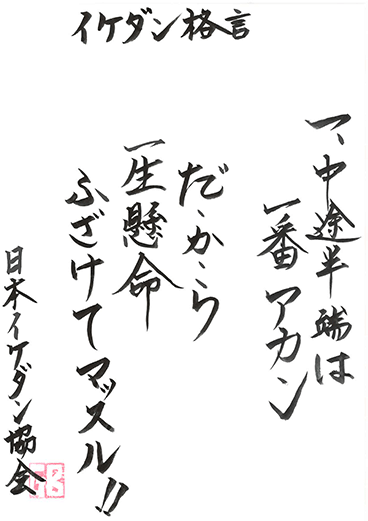 イケダン格言
一、中途半端は
一番アカン
だからから
一生懸命
ふざけてマッスル!!
日本イケダン協会
GB